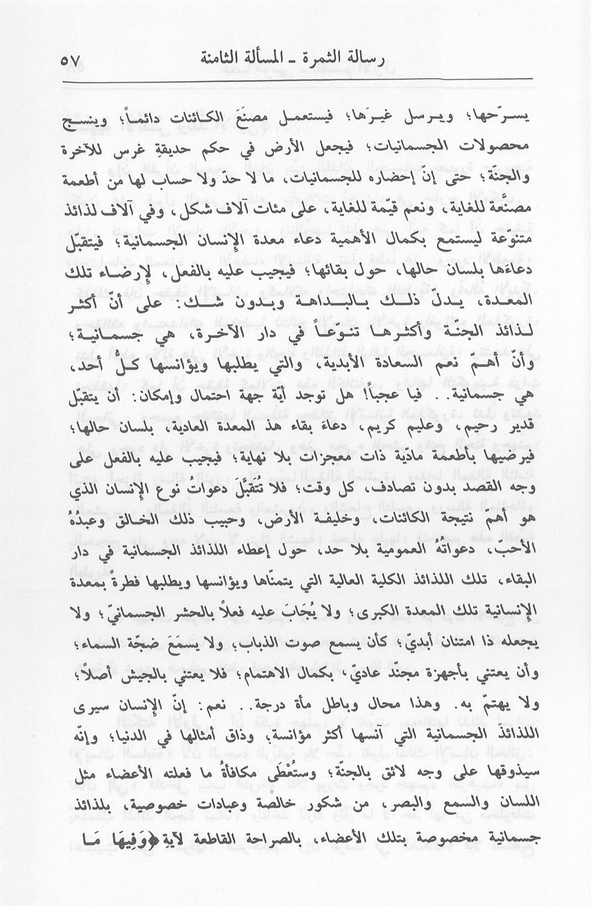 رسالة الثمرة ـ المسألة الثامنة ٥٧
يسرّحها؛ ويرسل غيرَها؛ فيستعمل مصنَعَ الكائنات دائماً؛ وينسج
محصولات الجسمانيات؛ فيجعل الأرض في حكم حديقةِ غرس للآخرة
والجنّة؛ حتى إنّ إحضاره للجسمانيات، ما لا حدّ ولا حساب لها من أطعمة
مصنَّعة للغاية، ونعم قيّمة للغاية، على مئات آلاف شكل، وفي آلاف لذائذ
متنوّعة ليستمع بكمال الأهمية دعاء معدة الإنسان الجسمانية؛ فيتقبّل
دعاءَها بلسان حالها، حول بقائها؛ فيجيب عليه بالفعل، لإرضاء تلك
المعدة، يدلّ ذلك بالبداهة وبدون شك: على أنّ أكثر
لذائذ الجنّة وأكثرها تنوّعاً في دار الآخرة، هي جسمانية؛
وأنّ أهمّ نعم السعادة الأبدية، والتي يطلبها ويؤانسها كلُّ أحد،
هي جسمانية.. فيا عجباً! هل توجد أيّة جهة احتمال وإمكان: أن يتقبّل
قدير رحيم، وعليم كريم، دعاءَ بقاء هذ المعدة العادية، بلسان حالها؛
فيرضيها بأطعمة مادّية ذات معجزات بلا نهاية؛ فيجيب عليه بالفعل على
وجه القصد بدون تصادف، كل وقت؛ فلا تُتقبَّلَ دعواتُ نوع الإنسان الذي
هو أهم نتيجة الكائنات، وخليفة الأرض، وحبيب ذلك الخالق وعبدُهُ
الأحب، دعواتُهُ العمومية بلا حد، حول إعطاء اللذائذ الجسمانية في دار
البقاء، تلك اللذائذ الكلية العالية التي يتمنّاها ويؤانسها ويطلبها فطرةً بمعدة
الإنسانية تلك المعدة الكبرى؛ ولا يُجَابَ عليه فعلاً بالحشر الجسمانيّ؛ ولا
يجعله ذا امتنان أبديّ؛ كأن يسمع صوت الذباب؛ ولا يسمَعَ ضجّة السماء؛
وأن يعتني بأجهزة مجنّد عاديّ، بكمال الاهتمام؛ فلا يعتني بالجيش أصلاً؛
ولا يهتمّ به. وهذا محال وباطل مأة درجة.. نعم: إنّ الإنسان سيرى
اللذائذ الجسمانية التي آنسها أكثر مؤانسة؛ وذاق أمثالها في الدنيا؛ وإنّه
سيذوقها على وجه لائق بالجنّة؛ وستُعْطَى مكافأةُ ما فعلته الأعضاء مثل
اللسان والسمع والبصر، من شكور خالصة وعبادات خصوصية، بلذائذ
جسمانية مخصوصة بتلك الأعضاء، بالصراحة القاطعة لآية ﴿وَفِيهَا مَا